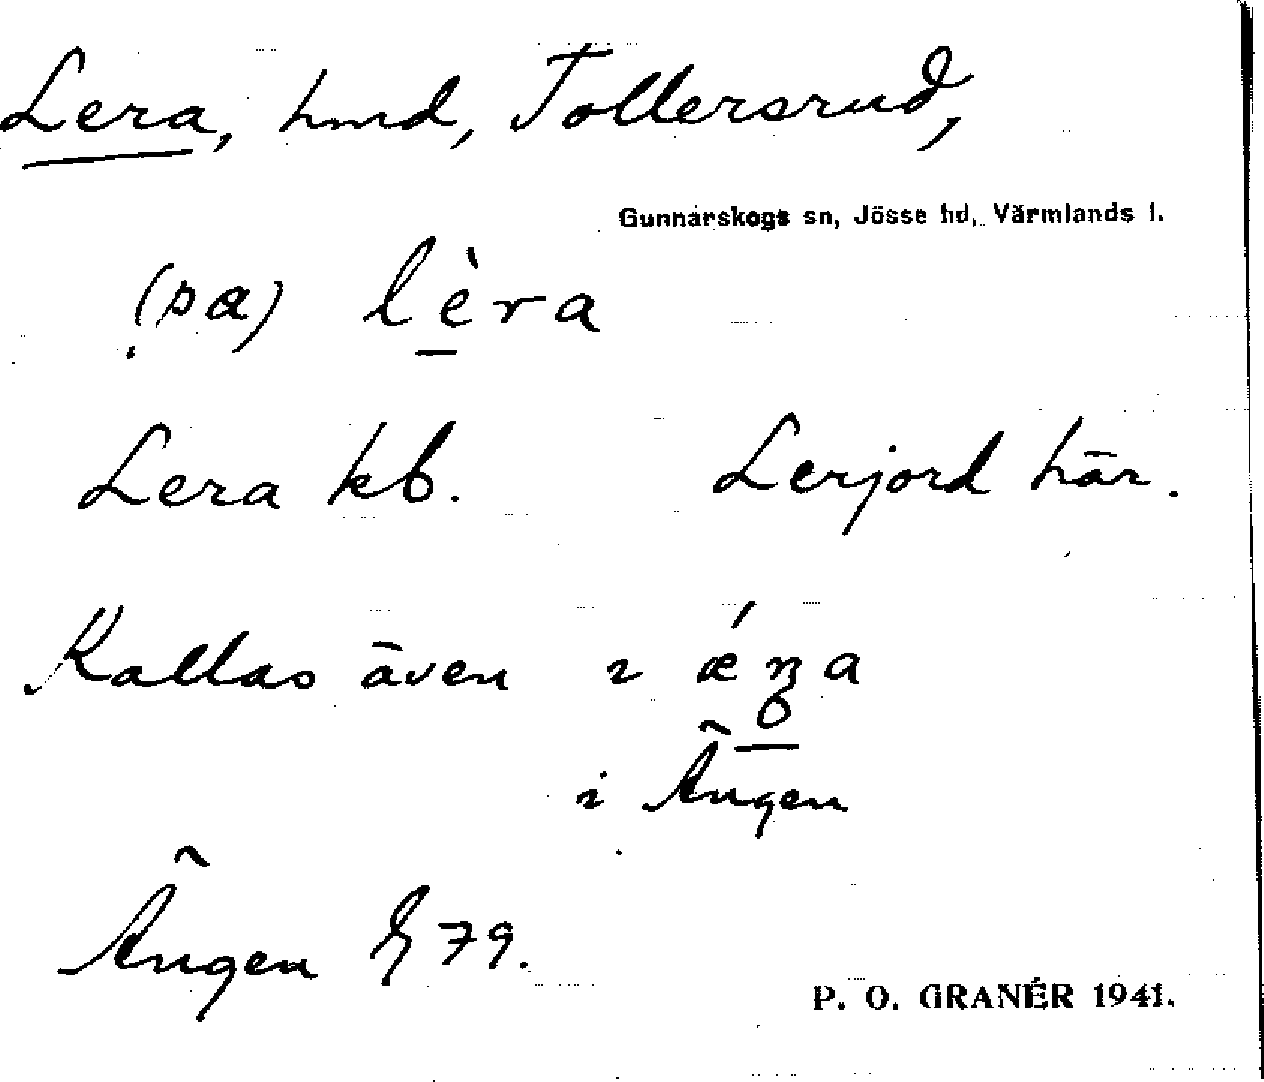 Lera, hmd, Tollersrud,
Gunnarskogs sn, Jösse hd, Värmlands l.
(pa) lèra
Lera kb. Lerjord här.
Kallas även i ǽŋa
i Ängen
Ängen 79.
P. O. GRANÉR 1941.